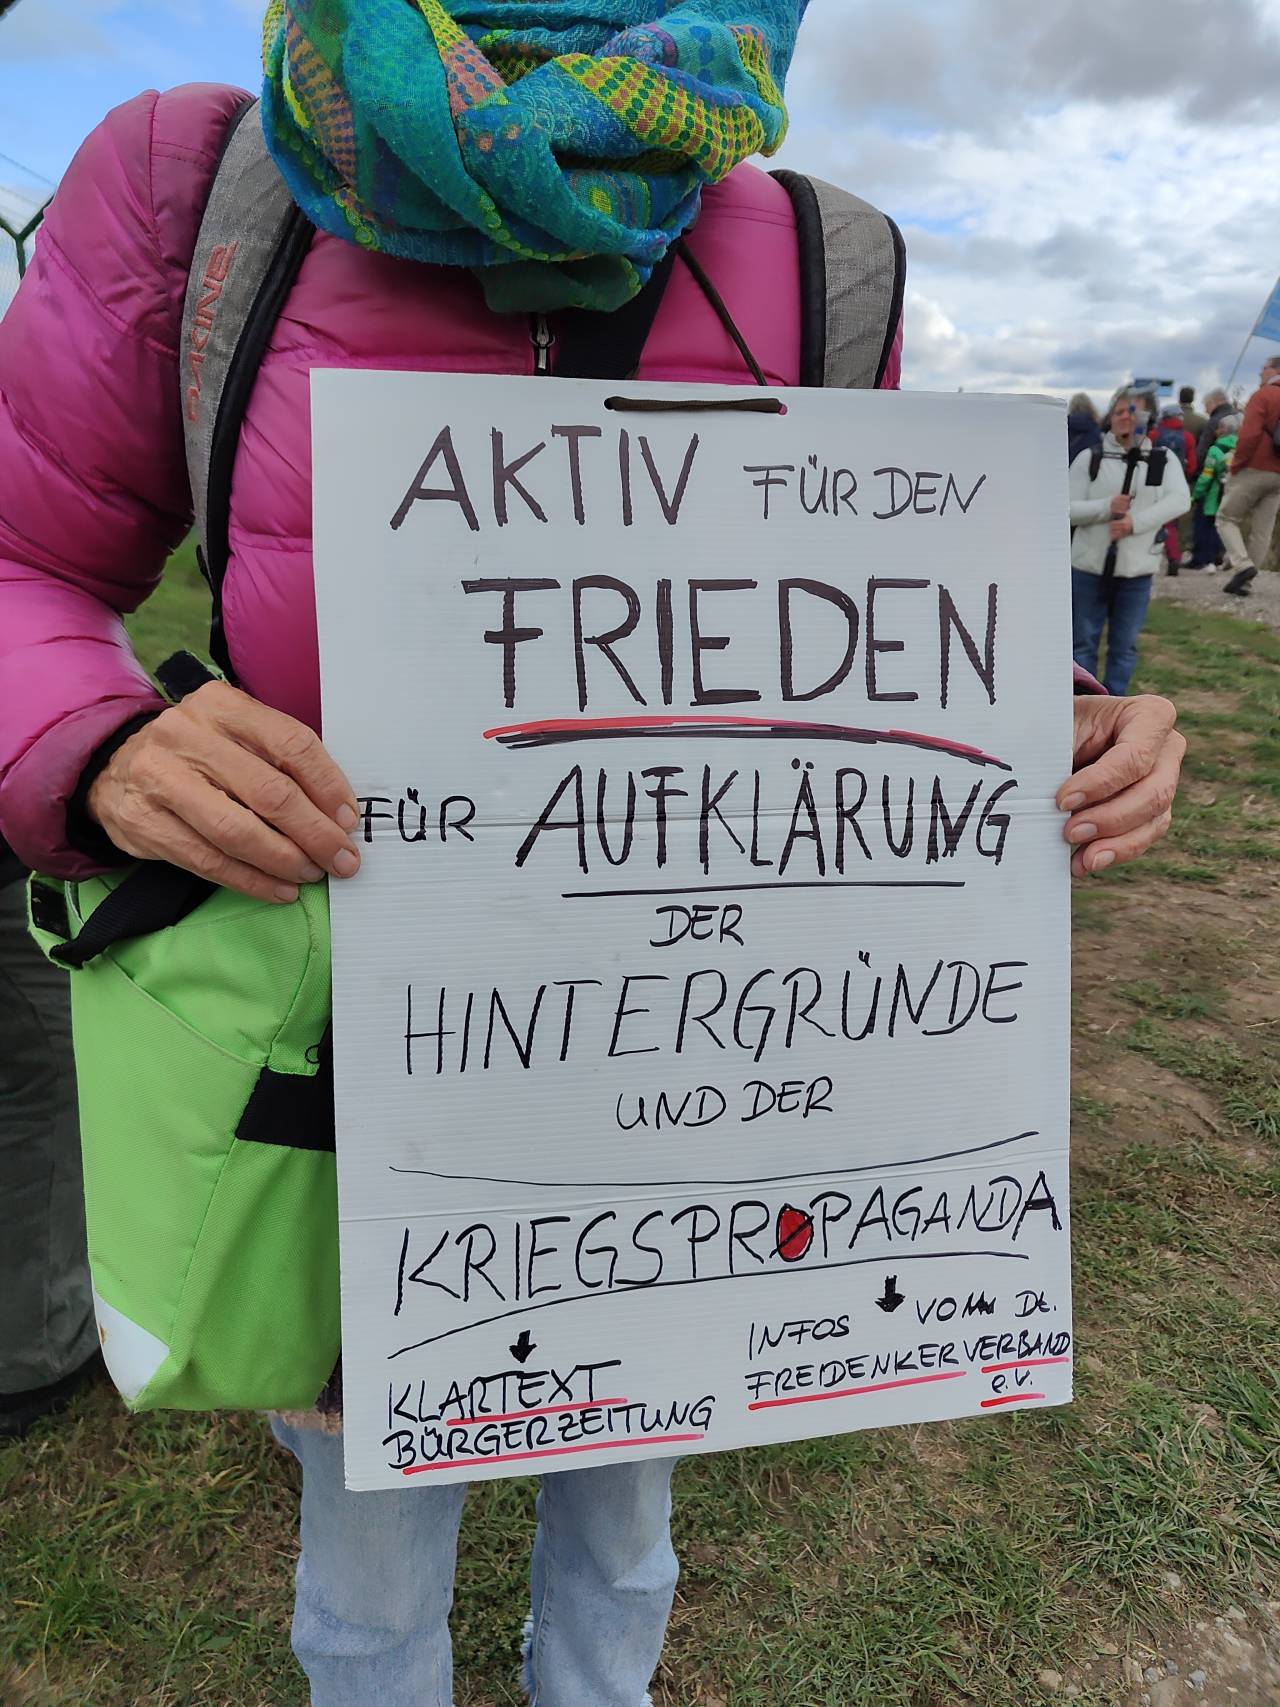 DAKINE
AKTIV FÜR DEN
FRIEDEN
FÜR AUFKLÄRUNG
DER
HINTERGRÜNDE
UND DER
KRIEGSPROPAGANDA
KLARTEXT
BÜRGERZEITUNG
INFOS VOM Dt.
FREIDENKERVERBAND
e.V.